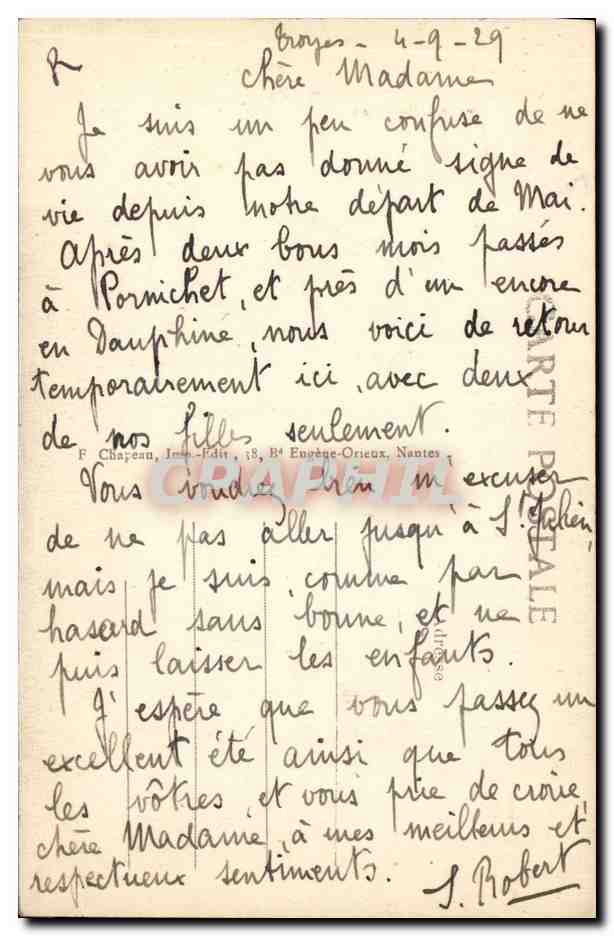 Troyes - 4-9-29
chère Madame
Je suis un peu confuse de ne
vous avoir pas donné signe de
vie depuis notre départ de Mai.
Après deux bons mois passés
à Pornichet, et près d'un encore
en Dauphiné, nous voici de retour
temporairement ici, avec deux
de nos filles seulement.
F. Chapeau, Imp.-Edit., 38, Bd Eugène-Orieux, Nantes -
CRAPHIL
Vous voudrez bien m'excuser
de ne pas aller jusqu'à St Julien,
mais je suis, comme par
hasard sans bonne, et ne
puis laisser les enfants.
J'espère que vous passez un
excellent été ainsi que tous
les vôtres, et vous prie de croire,
chère Madame, à mes meilleurs et
respectueux sentiments.
S. Robert
CARTE POSTALE
Adresse